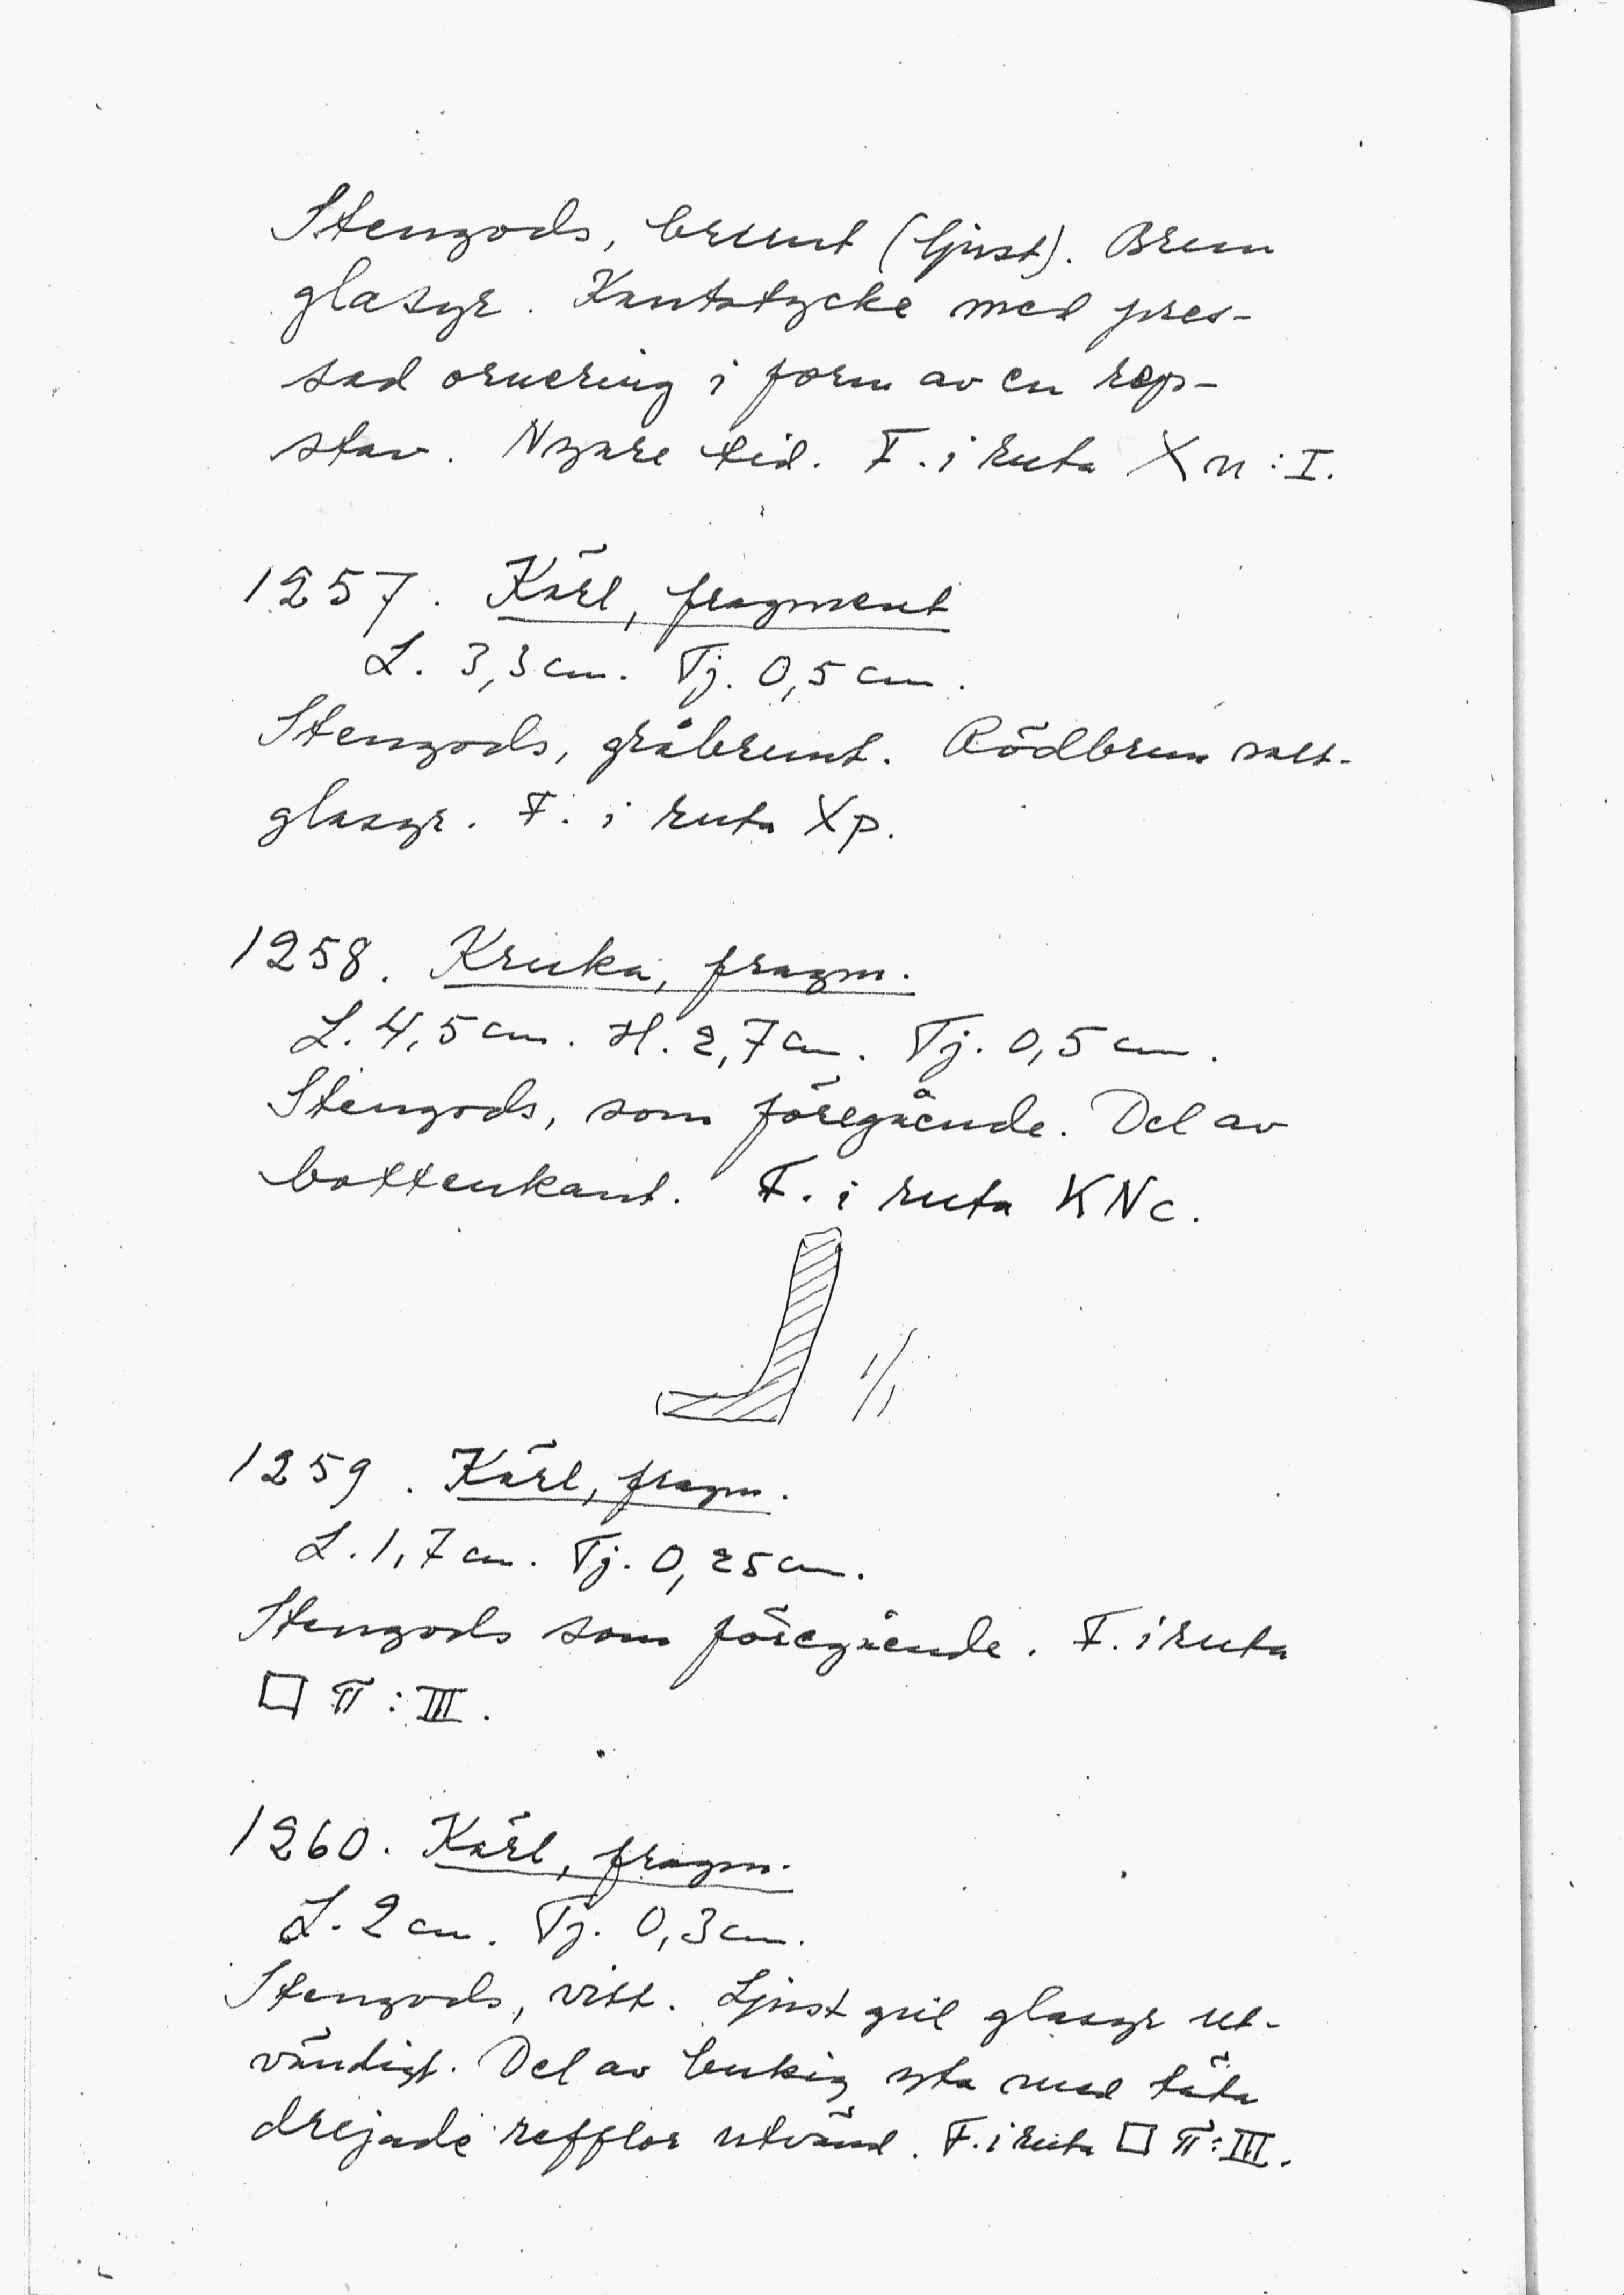 Stengods, brunt (ljust). Brun
glasyr. Kantstycke med pres-
sad ornering i form av en rep-
stav. Nyare tid. F. i ruta Xn:I.
1257. Kärl, fragment
L. 3,3 cm. Tj. 0,5 cm.
Stengods, gråbrunt. Rödbrun salt-
glasyr. F. i ruta Xp.
1258. Kruka, fragm.
L. 4,5 cm. H. 2,7 cm. Tj. 0,5 cm.
Stengods, som föregående. Del av
bottenkant. F. i ruta KNc.
1/1
1259. Kärl, fragm.
L. 1,7 cm. Tj. 0,25 cm.
Stengods som föregående. F. i ruta
□ π:III.
1260. Kärl, fragm.
L. 2 cm. Tj. 0,3 cm.
Stengods, vitt. Ljust gul glasyr ut-
vändigt. Del av bukig yta med täta
drejade refflor utvänd. F. i ruta □ π:III.